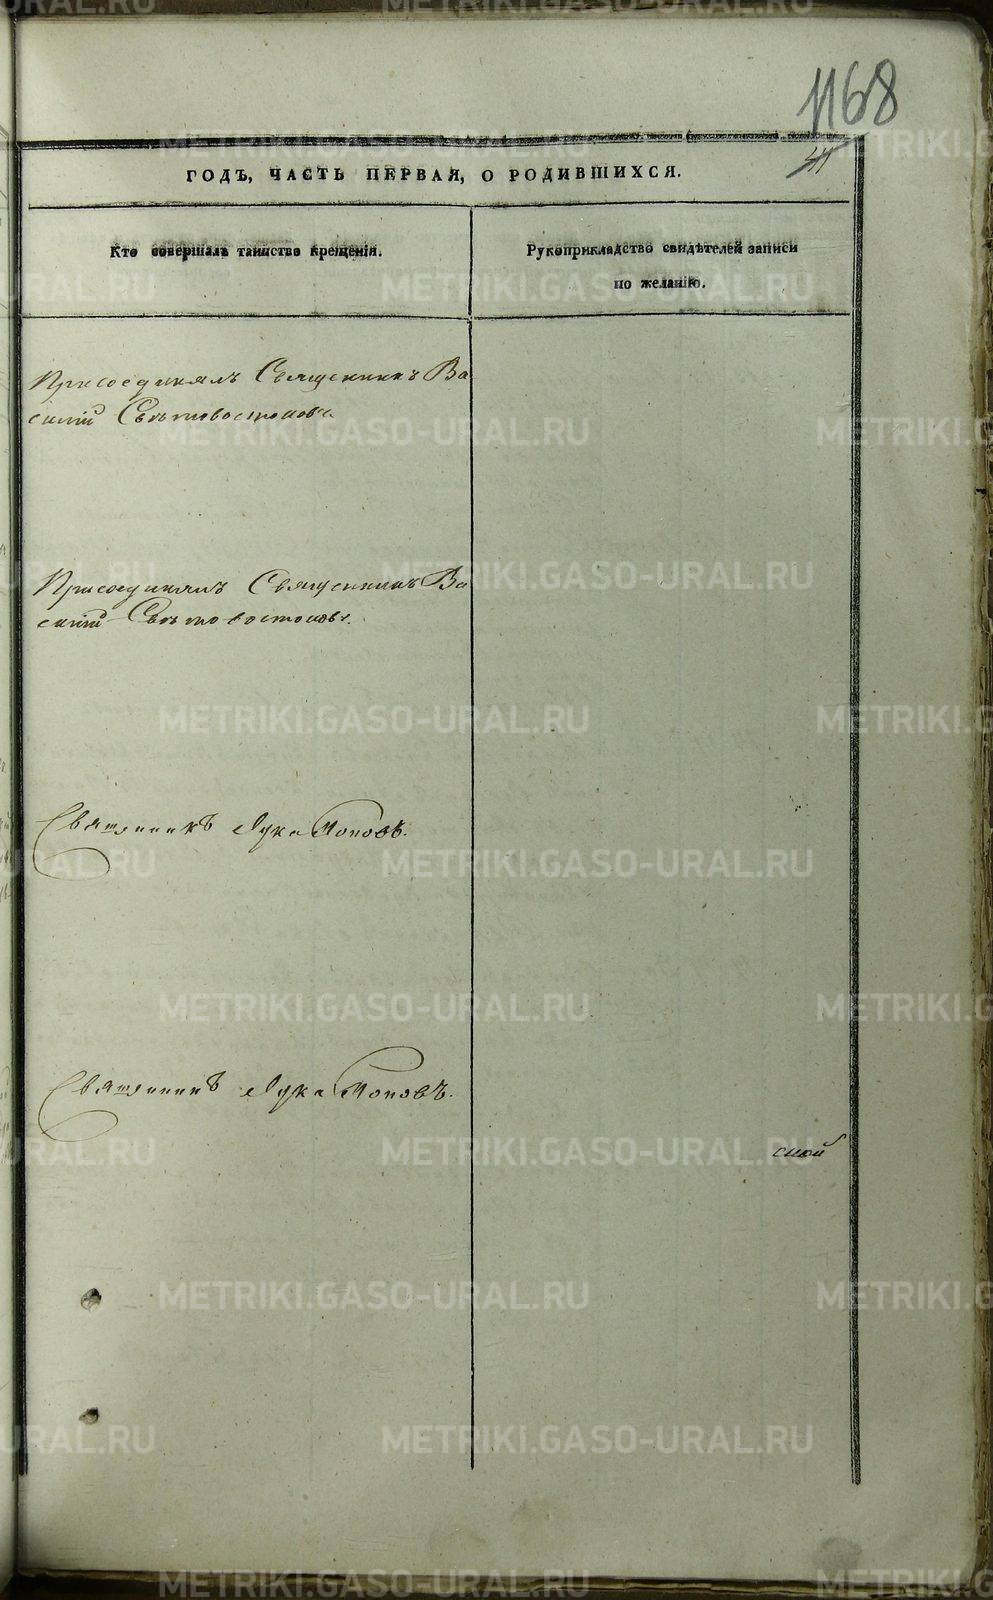 1168
41
ГОДЪ, ЧАСТЬ ПЕРВАЯ, О РОДИВШИХСЯ.
Кто совершалъ таинство крещенія.
Рукоприкладство свидѣтелей записи
по желанію.
Присоединялъ Священникъ Ва
силій Свѣтовостоковъ.
Присоединялъ Священникъ Ва
силій Свѣтовостоковъ.
Священникъ Лука Поповъ.
Священникъ Лука Поповъ.
ской
METRIKI.GASO-URAL.RU